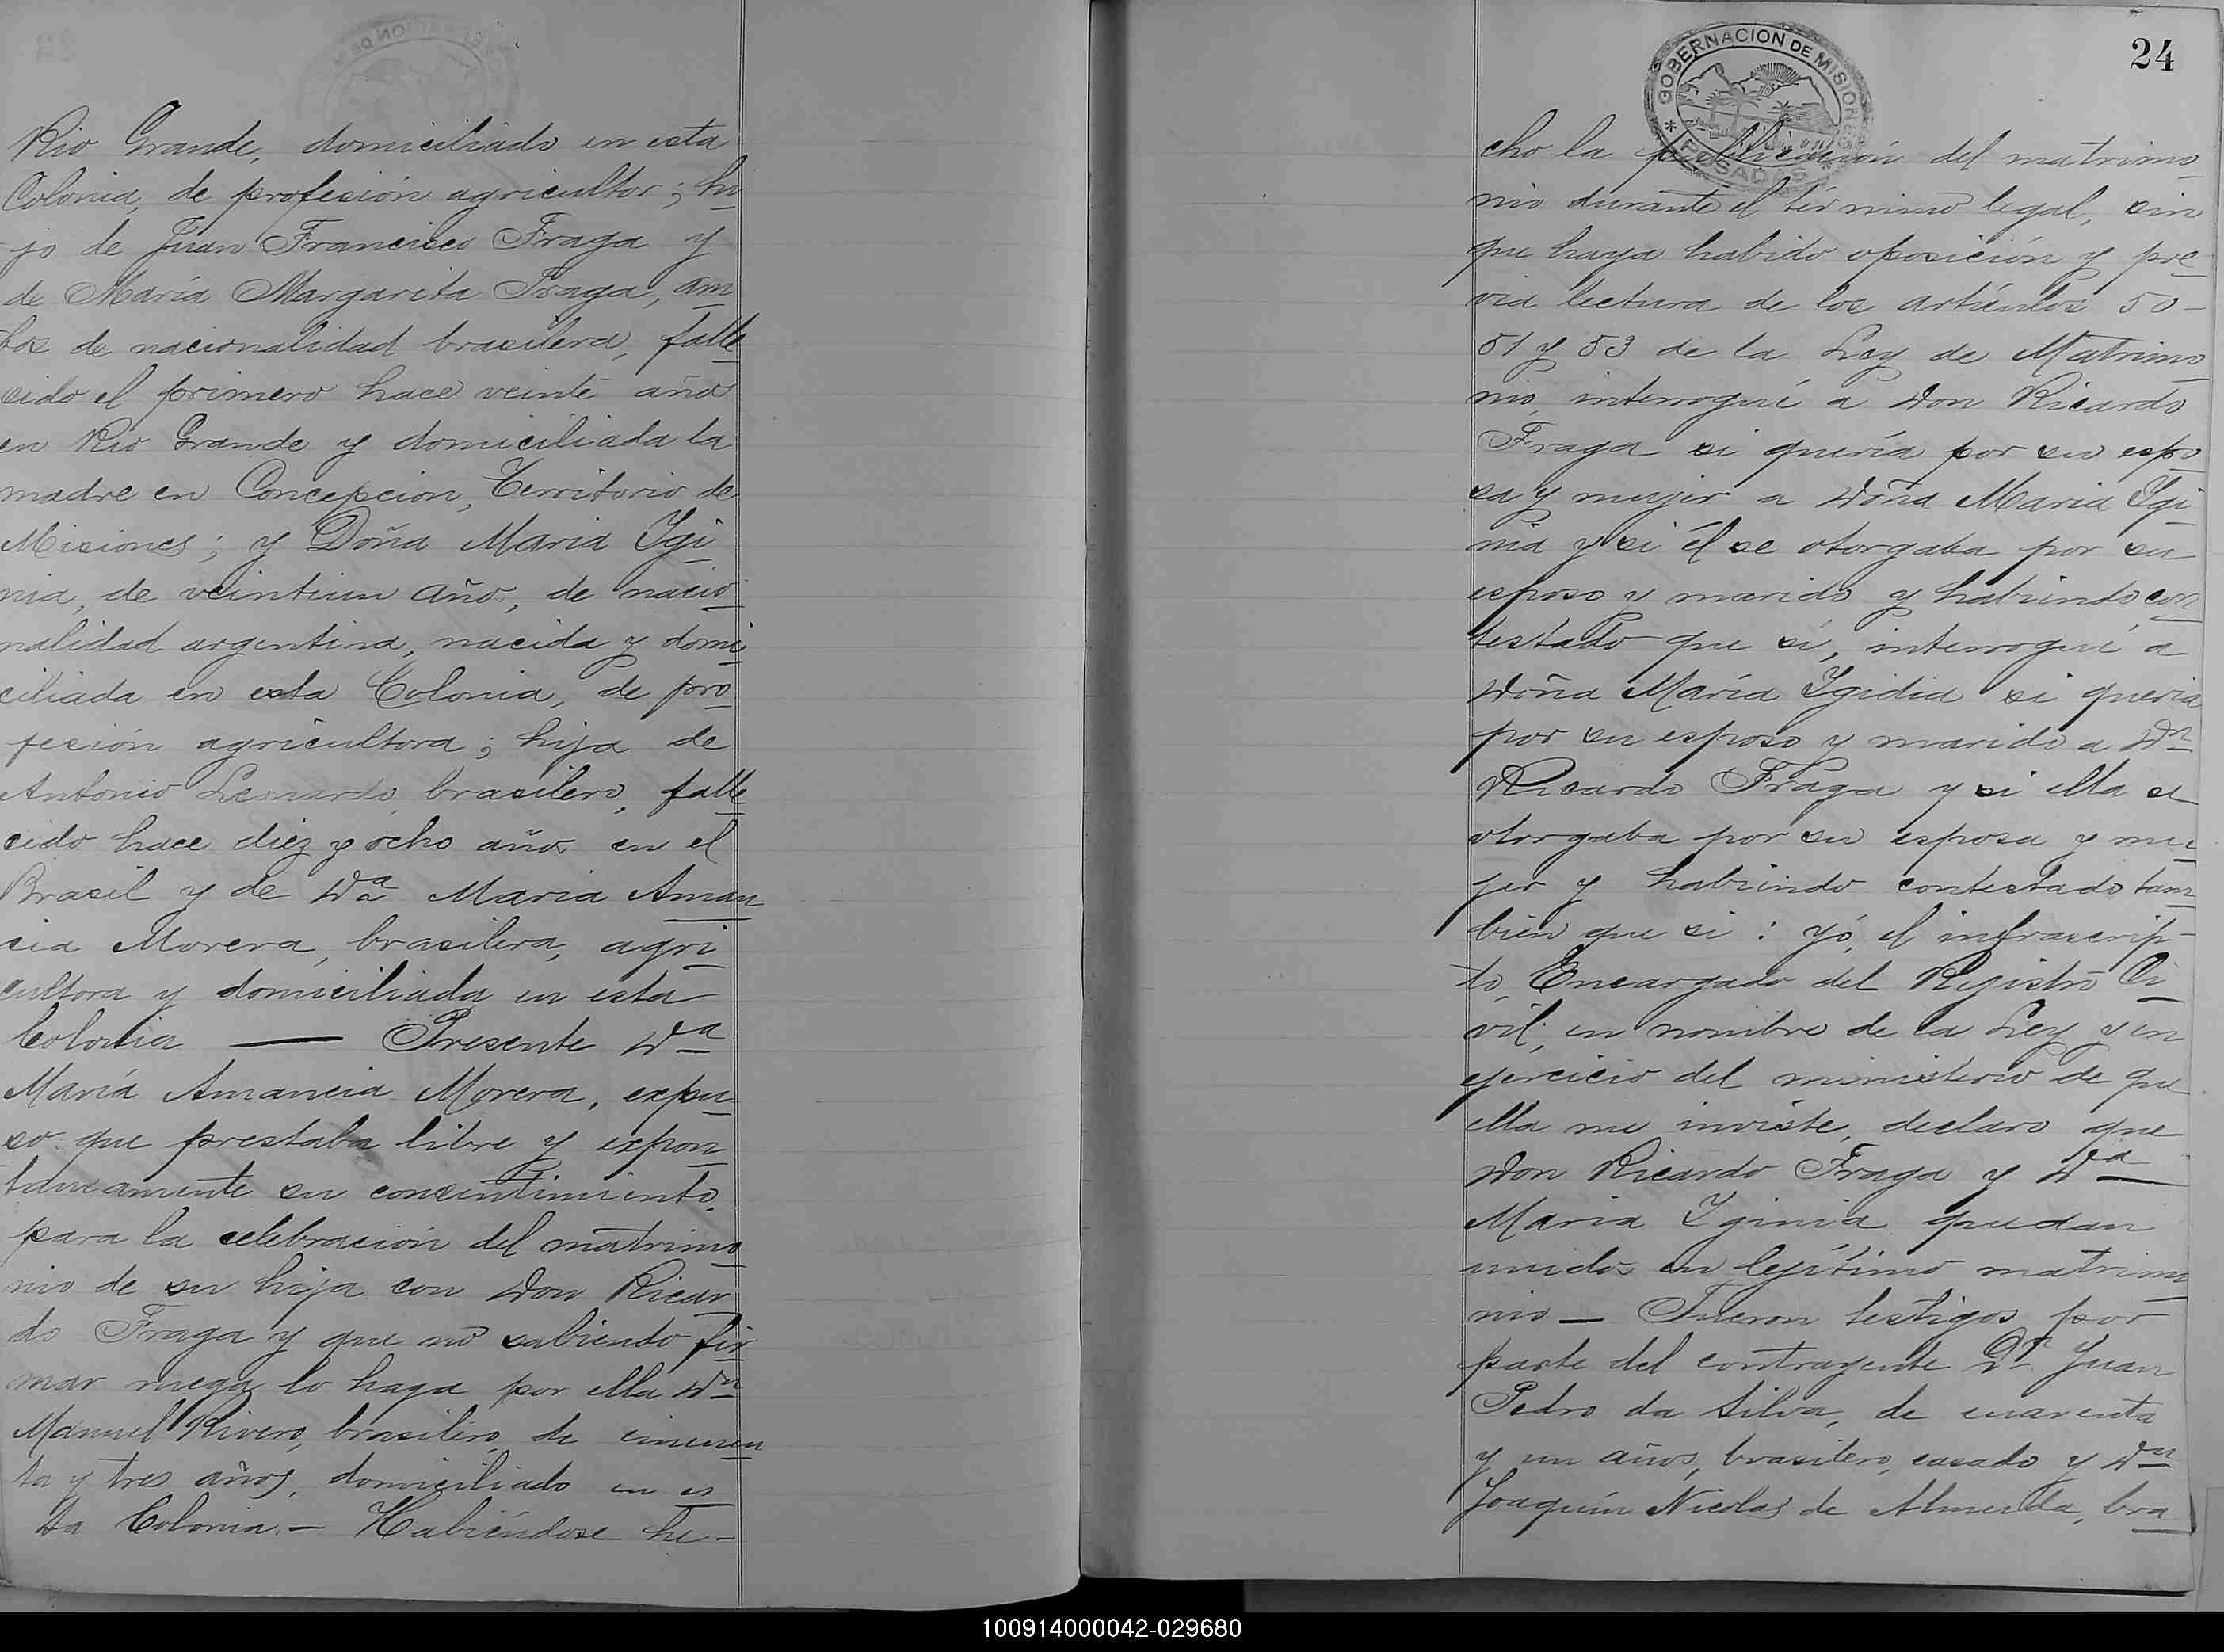 Rio Grande, domiciliado en esta
Colonia, de profesión agricultor; hi
jo de Juan Francisco Fraga y
de María Margarita Fraga, am
bos de nacionalidad brasilera, falle
cido el primero hace veinte años
en Rio Grande y domiciliada la
madre en Concepcion, Territorio de
Misiones; y Doña Maria Ygi
nia, de veintiun año, de nacio
nalidad argentina, nacida y domi
ciliada en esta Colonia, de pro
fesión agricultora; hija de
Antonio Leonardo, brasilero, falle
cido hace diez y ocho años en el
Brasil y de Dª Maria Aman
cia Morera, brasilera, agri
cultora y domiciliada en esta
Colonia — Presente Dª
María Amancia Morera, expu
so que prestaba libre y expon
taneamente su consentimiento
para la celebración del matrimo
nio de su hija con Don Ricar
do Fraga y que no sabiendo fir
mar ruega lo haga por ella Dn
Manuel Rivero, brasilero, de cincuen
ta y tres años, domiciliado en es
ta Colonia.— Habiéndose he-
24
GOBERNACION DE MISIONES
* POSADAS *
cho la publicación del matrimo
nio durante el término legal, sin
que haya habido oposición y pre
via lectura de los artículos 50-
51 y 53 de la Ley de Matrimo
nio, interrogué a Don Ricardo
Fraga si quería por su espo
sa y mujer a Doña Maria Ygi
nia y si él se otorgaba por su
esposo y marido y habiendo con
testado que sí, interrogué a
Doña María Ygidia si queria
por su esposo y marido a Dn
Ricardo Fraga y si ella se
otorgaba por su esposa y mu
jer y habiendo contestado tam
bién que si: yó, el infrascrip-
to, Encargado del Rejistro Ci
vil, en nombre de la Ley y en
ejercicio del ministerio de que
ella me inviste, declaro que
Don Ricardo Fraga y Dª
Maria Yginia quedan
unidos en lejítimo matrimo
nio — Fueron testigos por
parte del contrayente Dn Juan
Pedro da Silva, de cuarenta
y un años, brasilero, casado y Dn
Joaquín Nicolas de Almeida, bra
100914000042-029680